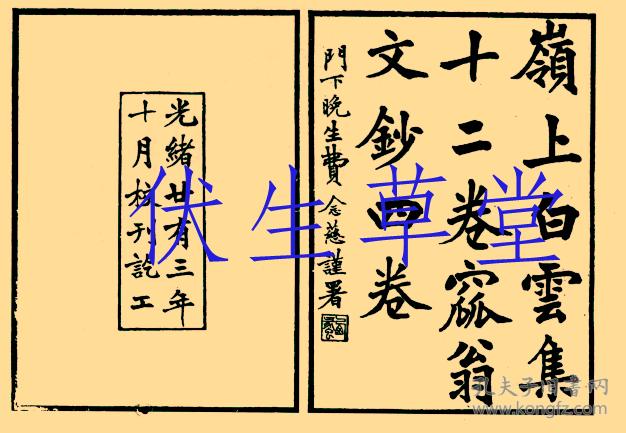 嶺上白雲集
十二卷窳翁
文鈔四卷
門下晚生費念慈謹署
光緒廿有三年
十月校刊訖工
伏生草堂
孔夫子旧书网
www.kongfz.com